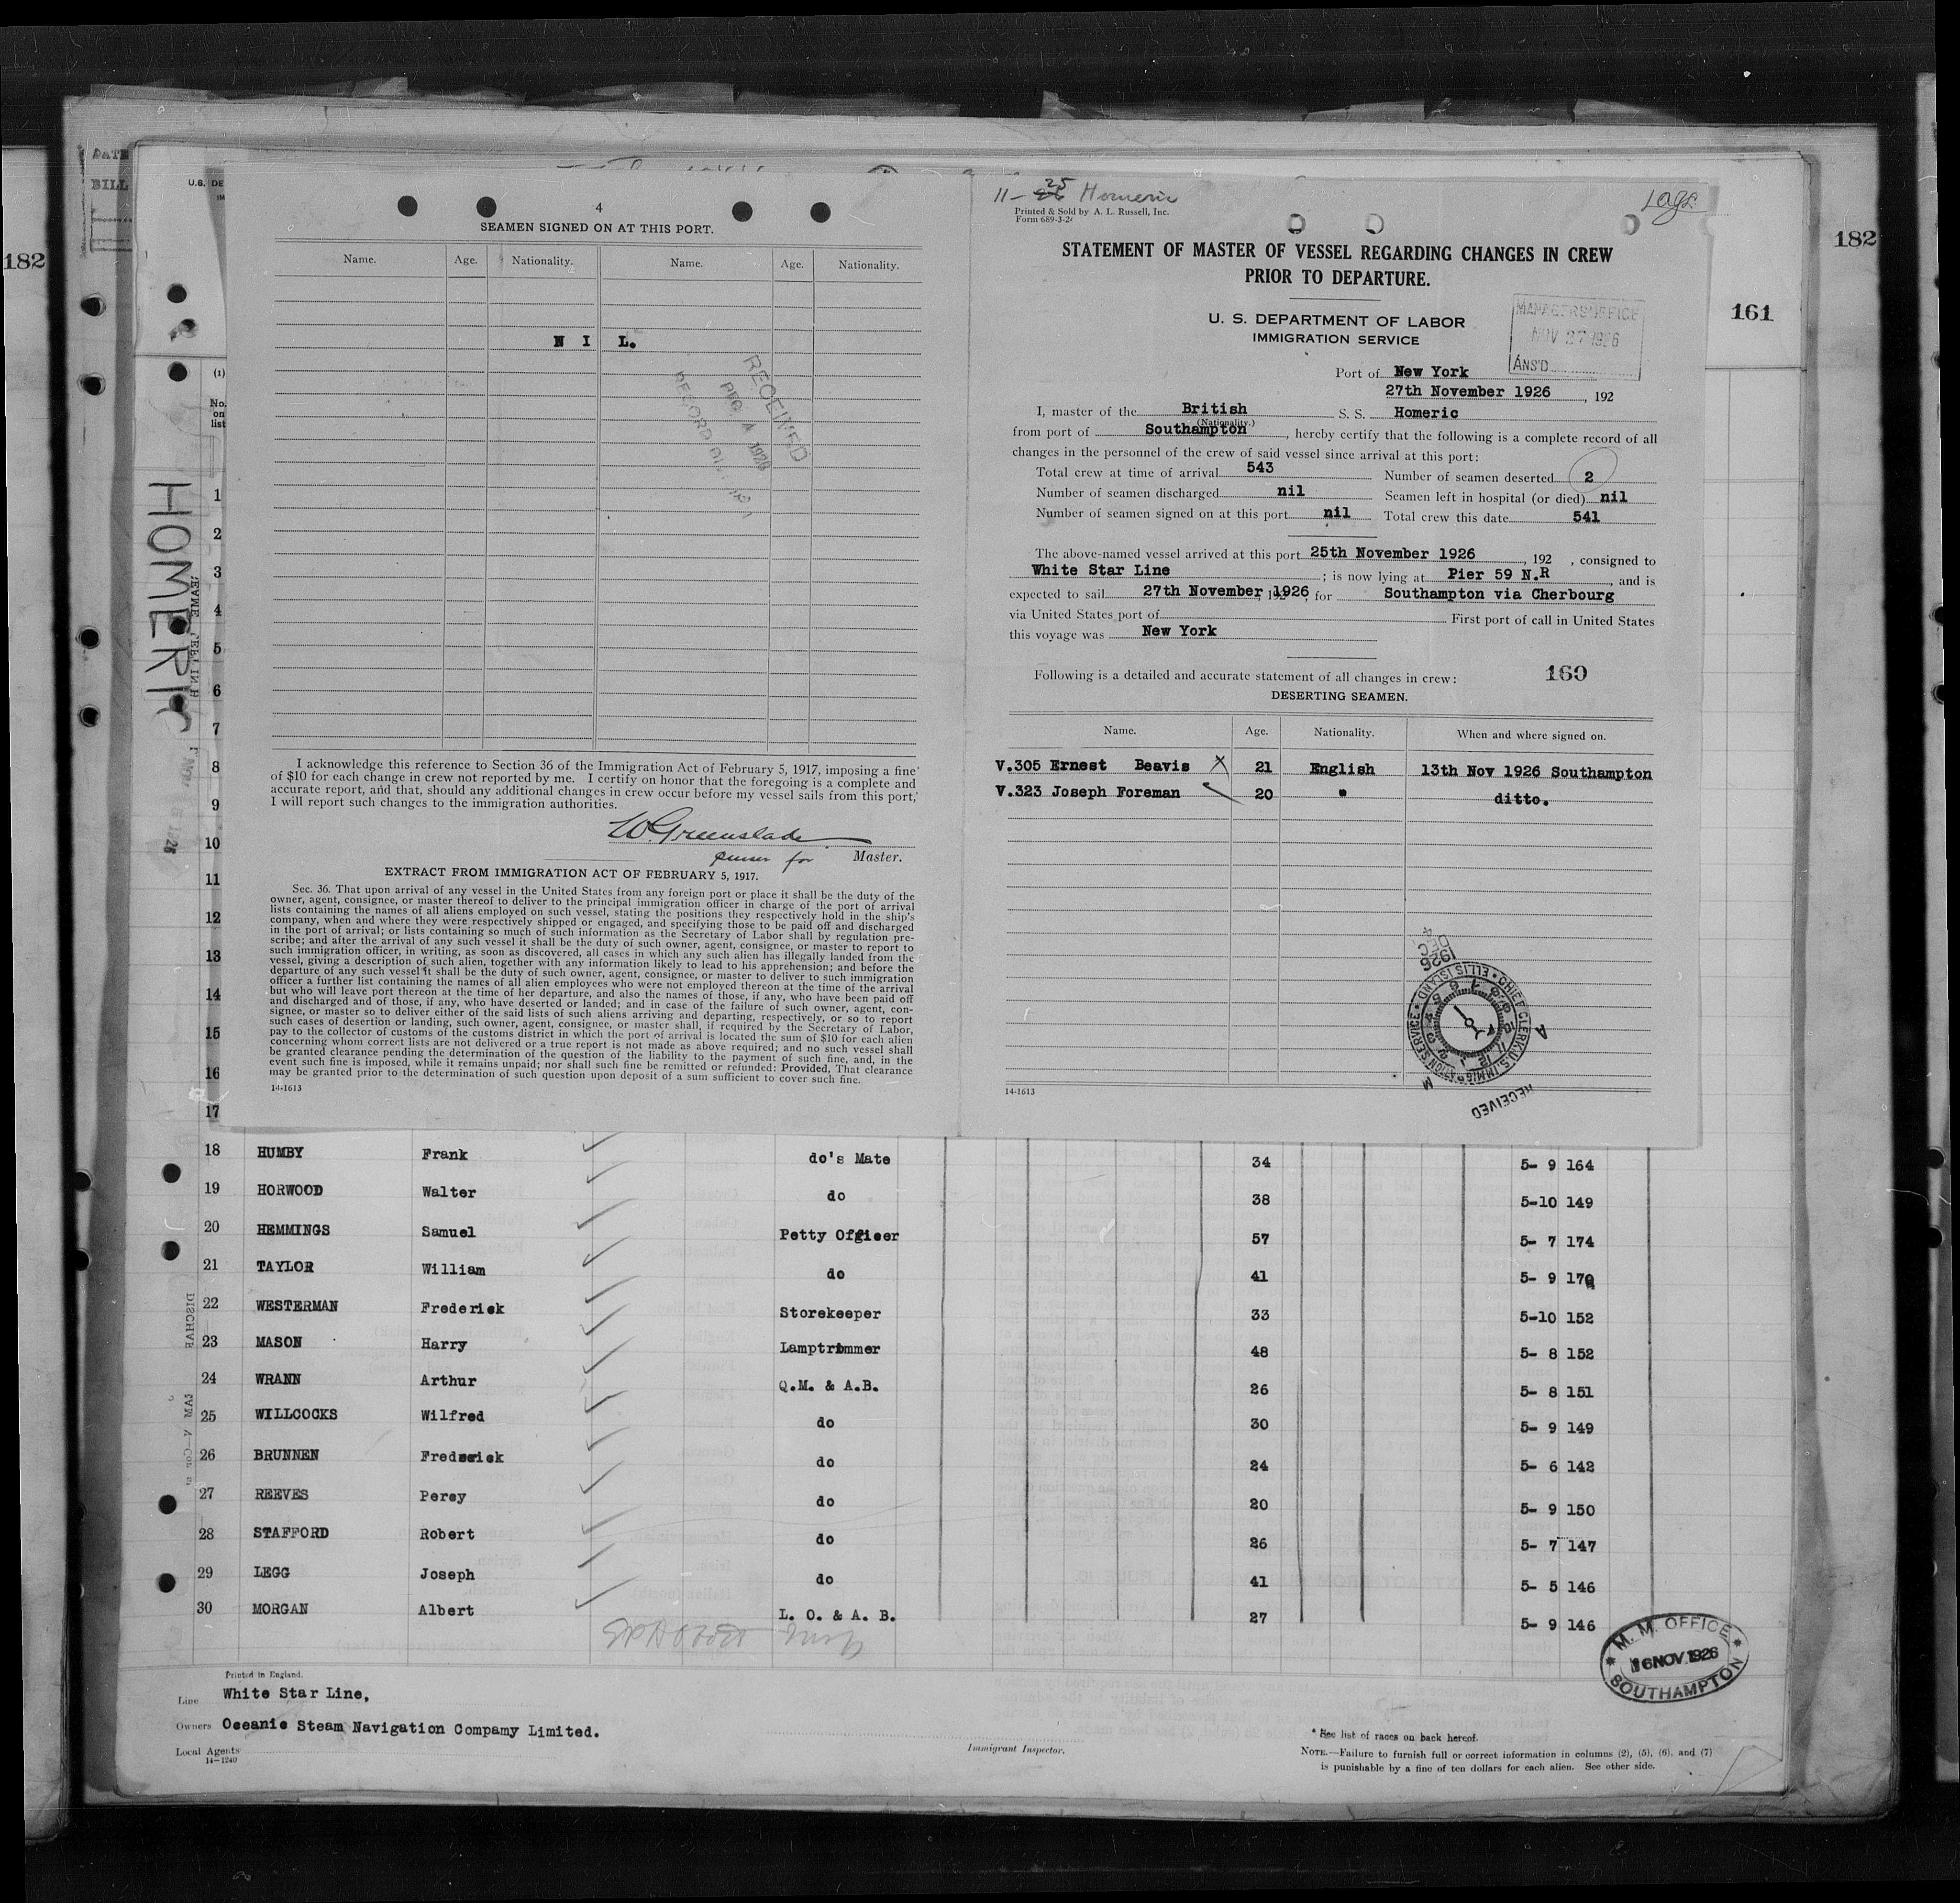 182
DATE
BILL
U.S. DE
IM
4
SEAMEN SIGNED ON AT THIS PORT.
Name. Age. Nationality. Name. Age. Nationality.
N I L.
RECEIVED
DEC 4 1926
RECORD
I acknowledge this reference to Section 36 of the Immigration Act of February 5, 1917, imposing a fine
of $10 for each change in crew not reported by me. I certify on honor that the foregoing is a complete and
accurate report, and that, should any additional changes in crew occur before my vessel sails from this port,
I will report such changes to the immigration authorities.
W. Greenslade
purser for Master.
EXTRACT FROM IMMIGRATION ACT OF FEBRUARY 5, 1917.
Sec. 36. That upon arrival of any vessel in the United States from any foreign port or place it shall be the duty of the
owner, agent, consignee, or master thereof to deliver to the principal immigration officer in charge of the port of arrival
lists containing the names of all aliens employed on such vessel, stating the positions they respectively hold in the ship's
company, when and where they were respectively shipped or engaged, and specifying those to be paid off and discharged
in the port of arrival; or lists containing so much of such information as the Secretary of Labor shall by regulation pre-
scribe; and after the arrival of any such vessel it shall be the duty of such owner, agent, consignee, or master to report to
such immigration officer, in writing, as soon as discovered, all cases in which any such alien has illegally landed from the
vessel, giving a description of such alien, together with any information likely to lead to his apprehension; and before the
departure of any such vessel it shall be the duty of such owner, agent, consignee, or master to deliver to such immigration
officer a further list containing the names of all alien employees who were not employed thereon at the time of the arrival
but who will leave port thereon at the time of her departure, and also the names of those, if any, who have been paid off
and discharged and of those, if any, who have deserted or landed; and in case of the failure of such owner, agent, con-
signee, or master so to deliver either of the said lists of such aliens arriving and departing, respectively, or so to report
such cases of desertion or landing, such owner, agent, consignee, or master shall, if required by the Secretary of Labor,
pay to the collector of customs of the customs district in which the port of arrival is located the sum of $10 for each alien
concerning whom correct lists are not delivered or a true report is not made as above required; and no such vessel shall
be granted clearance pending the determination of the question of the liability to the payment of such fine, and, in the
event such fine is imposed, while it remains unpaid; nor shall such fine be remitted or refunded: Provided, That clearance
may be granted prior to the determination of such question upon deposit of a sum sufficient to cover such fine.
14-1613
11-25 Homeric
Printed & Sold by A. L. Russell, Inc.
Form 689-3-26
STATEMENT OF MASTER OF VESSEL REGARDING CHANGES IN CREW
PRIOR TO DEPARTURE.
U. S. DEPARTMENT OF LABOR
IMMIGRATION SERVICE
MANAGERS OFFICE
NOV 27 1926
ANS'D
Port of New York
27th November 1926, 192
I, master of the British S. S. Homeric
(Nationality.)
from port of Southampton, hereby certify that the following is a complete record of all
changes in the personnel of the crew of said vessel since arrival at this port:
Total crew at time of arrival 543 Number of seamen deserted 2
Number of seamen discharged nil Seamen left in hospital (or died) nil
Number of seamen signed on at this port nil Total crew this date 541
The above-named vessel arrived at this port 25th November 1926, 192 , consigned to
White Star Line; is now lying at Pier 59 N.R, and is
expected to sail 27th November 1926, 192 for Southampton via Cherbourg
via United States port of First port of call in United States
this voyage was New York
160
Following is a detailed and accurate statement of all changes in crew:
DESERTING SEAMEN.
Name. Age. Nationality. When and where signed on.
V.305 Ernest Beavis X 21 English 13th Nov 1926 Southampton
V.323 Joseph Foreman 20 " ditto.
1926 DEC 4
CHIEF CLERK U.S. IMMIGRATION SERVICE ELLIS ISLAND
A M
RECEIVED
14-1613
182
161
HOMERIC
(1)
No. on list
1
2
3
4
5
6
7
8
9
10
11
12
13
14
15
16
17
18 HUMBY Frank do's Mate 34 5- 9 164
19 HORWOOD Walter do 38 5-10 149
20 HEMMINGS Samuel Petty Officer 57 5- 7 174
21 TAYLOR William do 41 5- 9 170
22 WESTERMAN Frederick Storekeeper 33 5-10 152
23 MASON Harry Lamptrimmer 48 5- 8 152
24 WRANN Arthur Q.M. & A.B. 26 5- 8 151
25 WILLCOCKS Wilfred do 30 5- 9 149
26 BRUNNEN Frederick do 24 5- 6 142
27 REEVES Percy do 20 5- 9 150
28 STAFFORD Robert do 26 5- 7 147
29 LEGG Joseph do 41 5- 5 146
30 MORGAN Albert L. O. & A. B. 27 5- 9 146
M. M. OFFICE
16 NOV. 1926
SOUTHAMPTON
Printed in England.
Line White Star Line,
Owners Oceanic Steam Navigation Compamy Limited.
Local Agents
14-1240
Immigrant Inspector.
* See list of races on back hereof.
NOTE.—Failure to furnish full or correct information in columns (2), (5), (6), and (7)
is punishable by a fine of ten dollars for each alien. See other side.